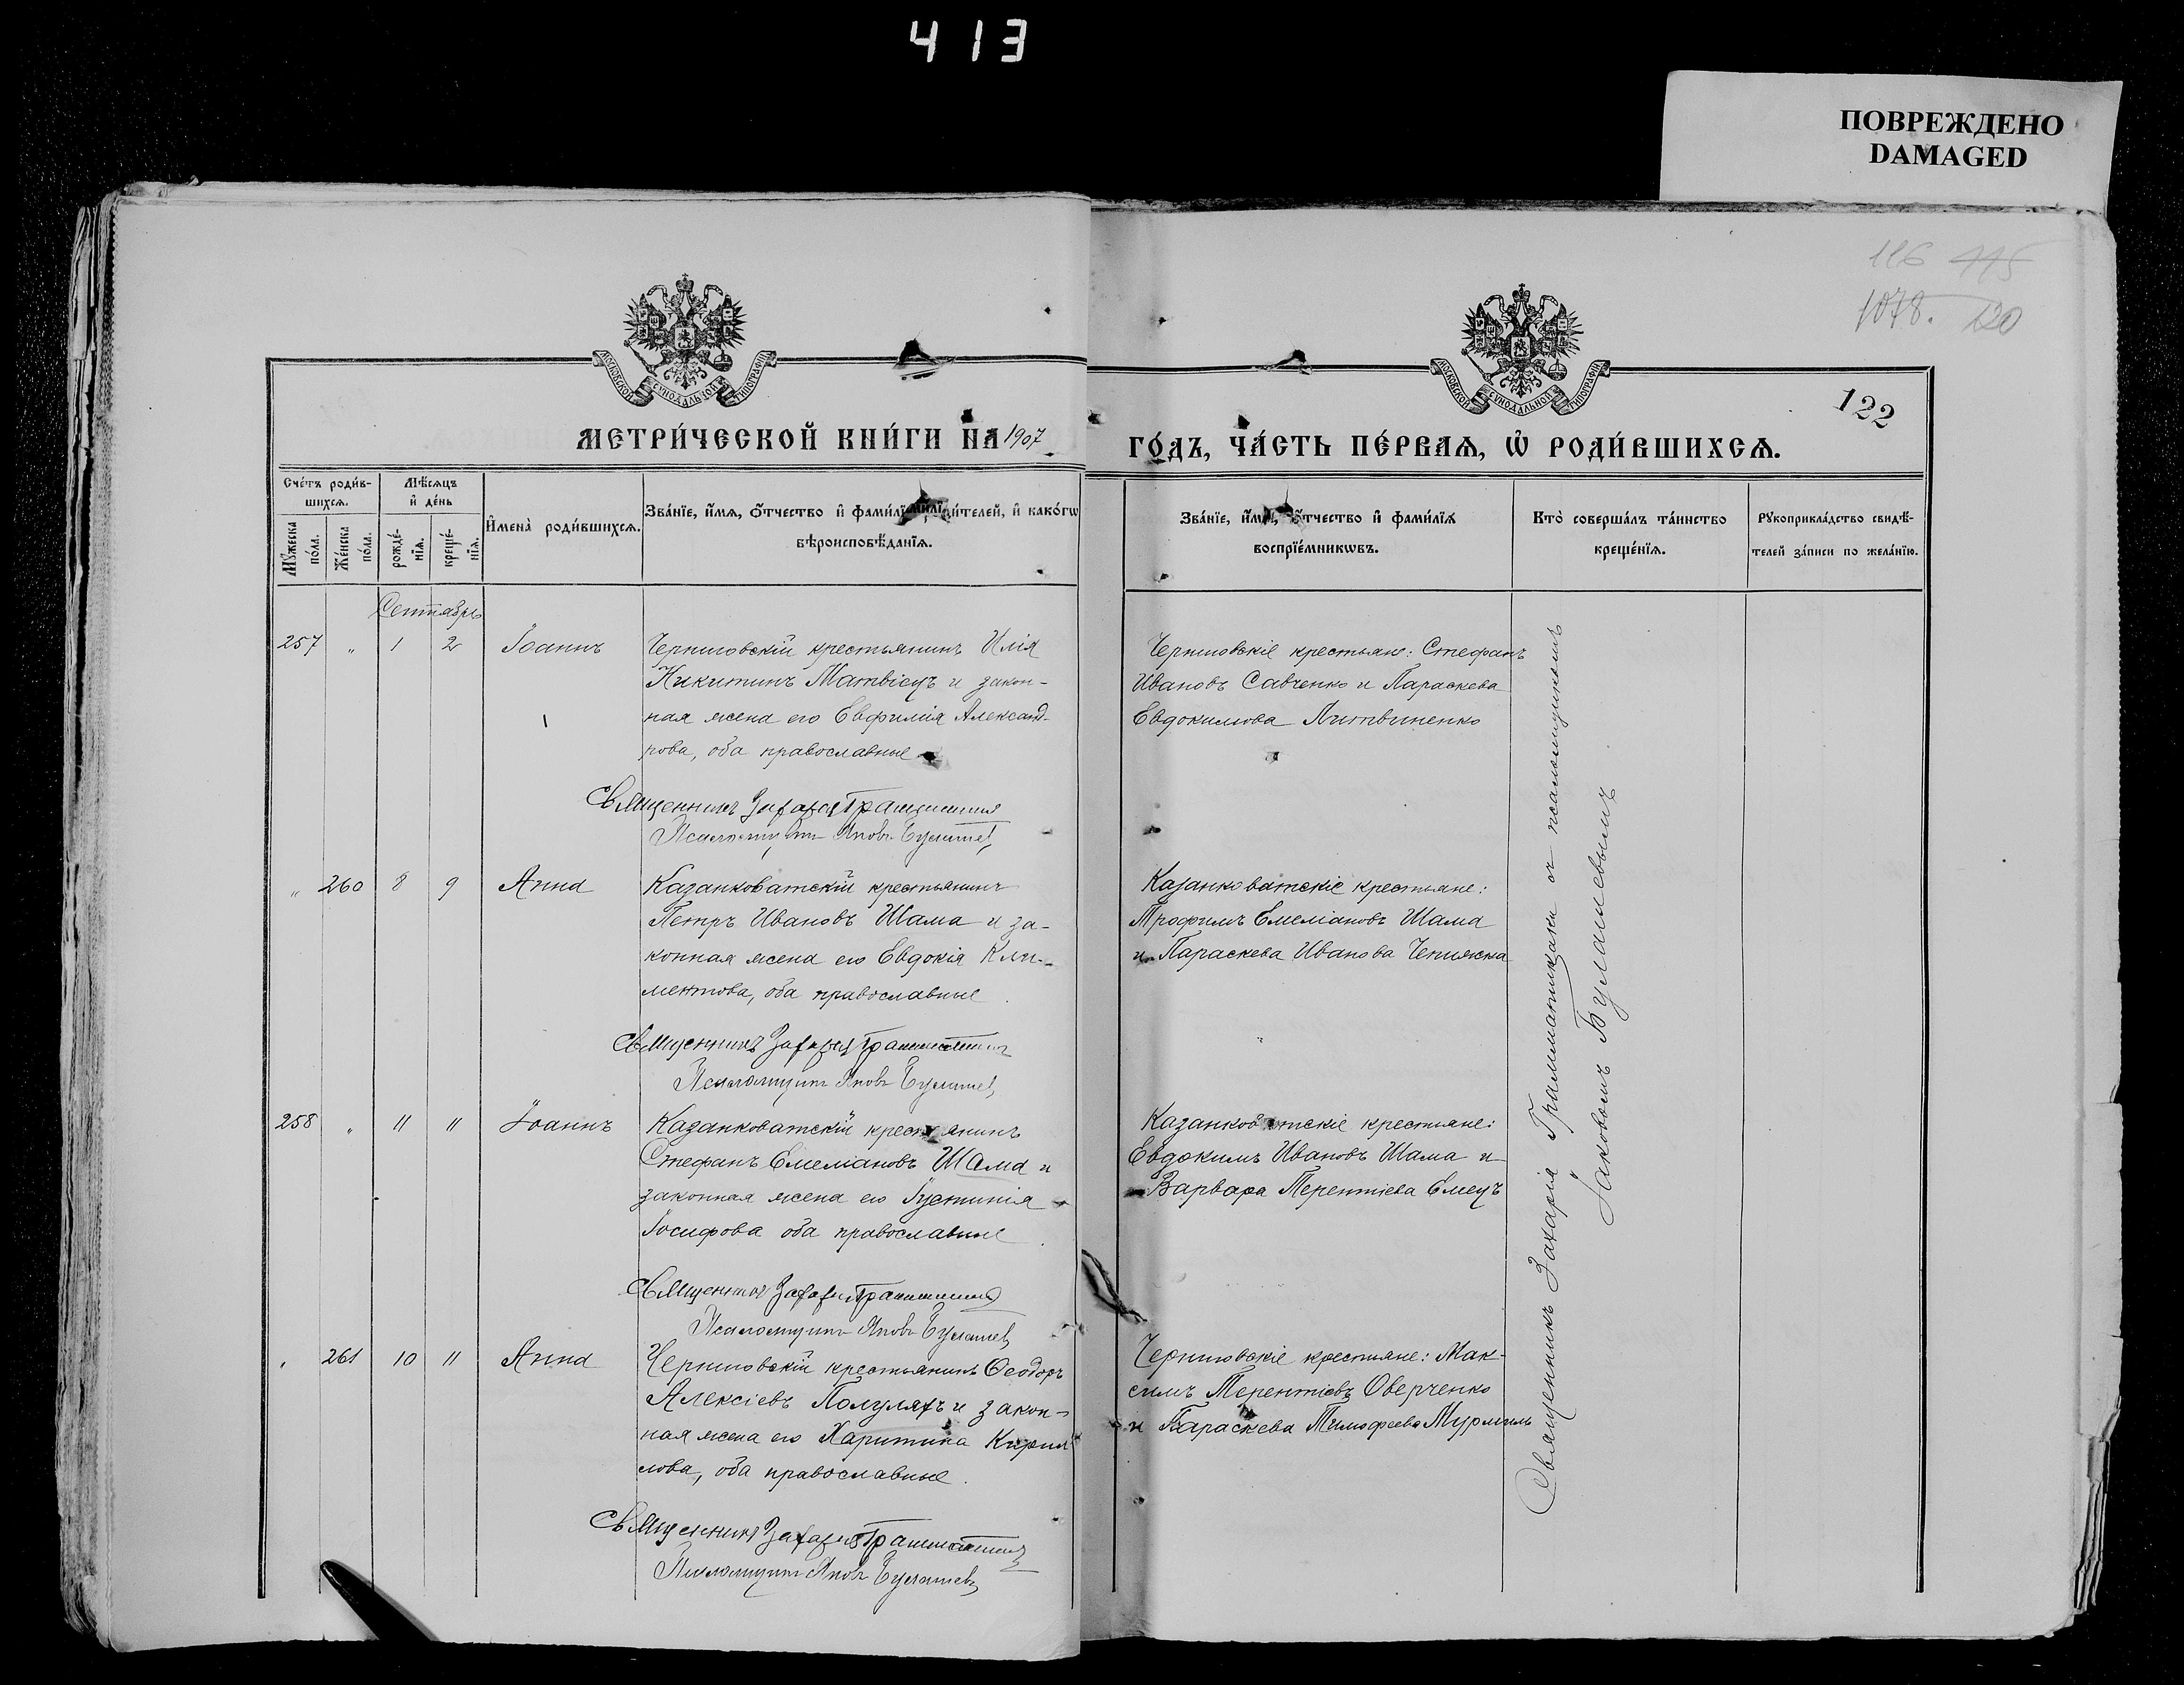 413
ПОВРЕЖДЕНО
DAMAGED
116 115
1078. 120
122
МОСКОВСКОЙ СѴНОДАЛЬНОЙ ТИПОГРАФІИ
МОСКОВСКОЙ СѴНОДАЛЬНОЙ ТИПОГРАФІИ
МЕТРИ́ЧЕСКОЙ КНИ́ГИ НА 1907
ГО́ДЪ, ЧА́СТЬ ПЕ́РВАѦ, Ѡ҆ РОДИ́ВШИХСѦ.
Сче́тъ роди́в-
шихсѧ.
Мꙋ́жеска
по́ла.
Же́нска
по́ла.
Мѣ́сѧцъ
и҆ де́нь
рожде́-
нїѧ.
креще́-
нїѧ.
И҆мена̀ роди́вшихсѧ.
Зва́нїе, и҆́мѧ, ѻ҆́тчество и҆ фами́лїѧ роди́телей, и҆ како́гѡ
вѣроисповѣ́данїѧ.
Зва́нїе, и҆́мѧ, ѻ҆́тчество и҆ фами́лїѧ
воспрїе́мникѡвъ.
Кто̀ соверша́лъ та́инство
креще́нїѧ.
Рꙋкоприкла́дство свидѣ́-
телей за́писи по жела́нїю.
Сентябрь
257 „ 1 2 Іоаннъ
Черниговскій крестьянинъ Илія
Никитинъ Матвіецъ и закон-
ная жена его Евфимія Александ-
рова, оба православные
Священникъ Захарія Грамматикати
Псаломщикъ Яковъ Булашев
Черниговскіе крестьяне: Стефанъ
Ивановъ Савченко и Параскева
Евдокимова Литвиненко
„ 260 8 9 Анна
Казанковатскій крестьянинъ
Петръ Ивановъ Шама и за-
конная жена его Евдокія Кли-
ментова, оба православные
Священникъ Захарія Грамматикати
Псаломщикъ Яковъ Булашев
Казанковатскіе крестьяне:
Трофимъ Емеліановъ Шама
и Параскева Иванова
258 „ 11 11 Іоаннъ
Казанковатскій крестьянинъ
Стефанъ Емеліановъ Шама и
законная жена его Іустинія
Іосифова оба православные
Священникъ Захарія Грамматикати
Псаломщикъ Яковъ Булашев
Казанковатскіе крестьяне:
Евдокимъ Ивановъ Шама и
Варвара Терентіева Емецъ
„ 261 10 11 Анна
Черниговскій крестьянинъ Ѳеодоръ
Алексіевъ Полуляхъ и закон-
ная жена его Харитина Кирил-
лова, оба православные.
Священникъ Захарія Грамматикати
Псаломщикъ Яковъ Булашевъ
Черниговскіе крестьяне: Мак-
симъ Терентіевъ Оверченко
и Параскева Тимофеева Мурмиль
Священникъ Захарія Грамматикати съ псаломщикомъ
Іаковомъ Булашевымъ